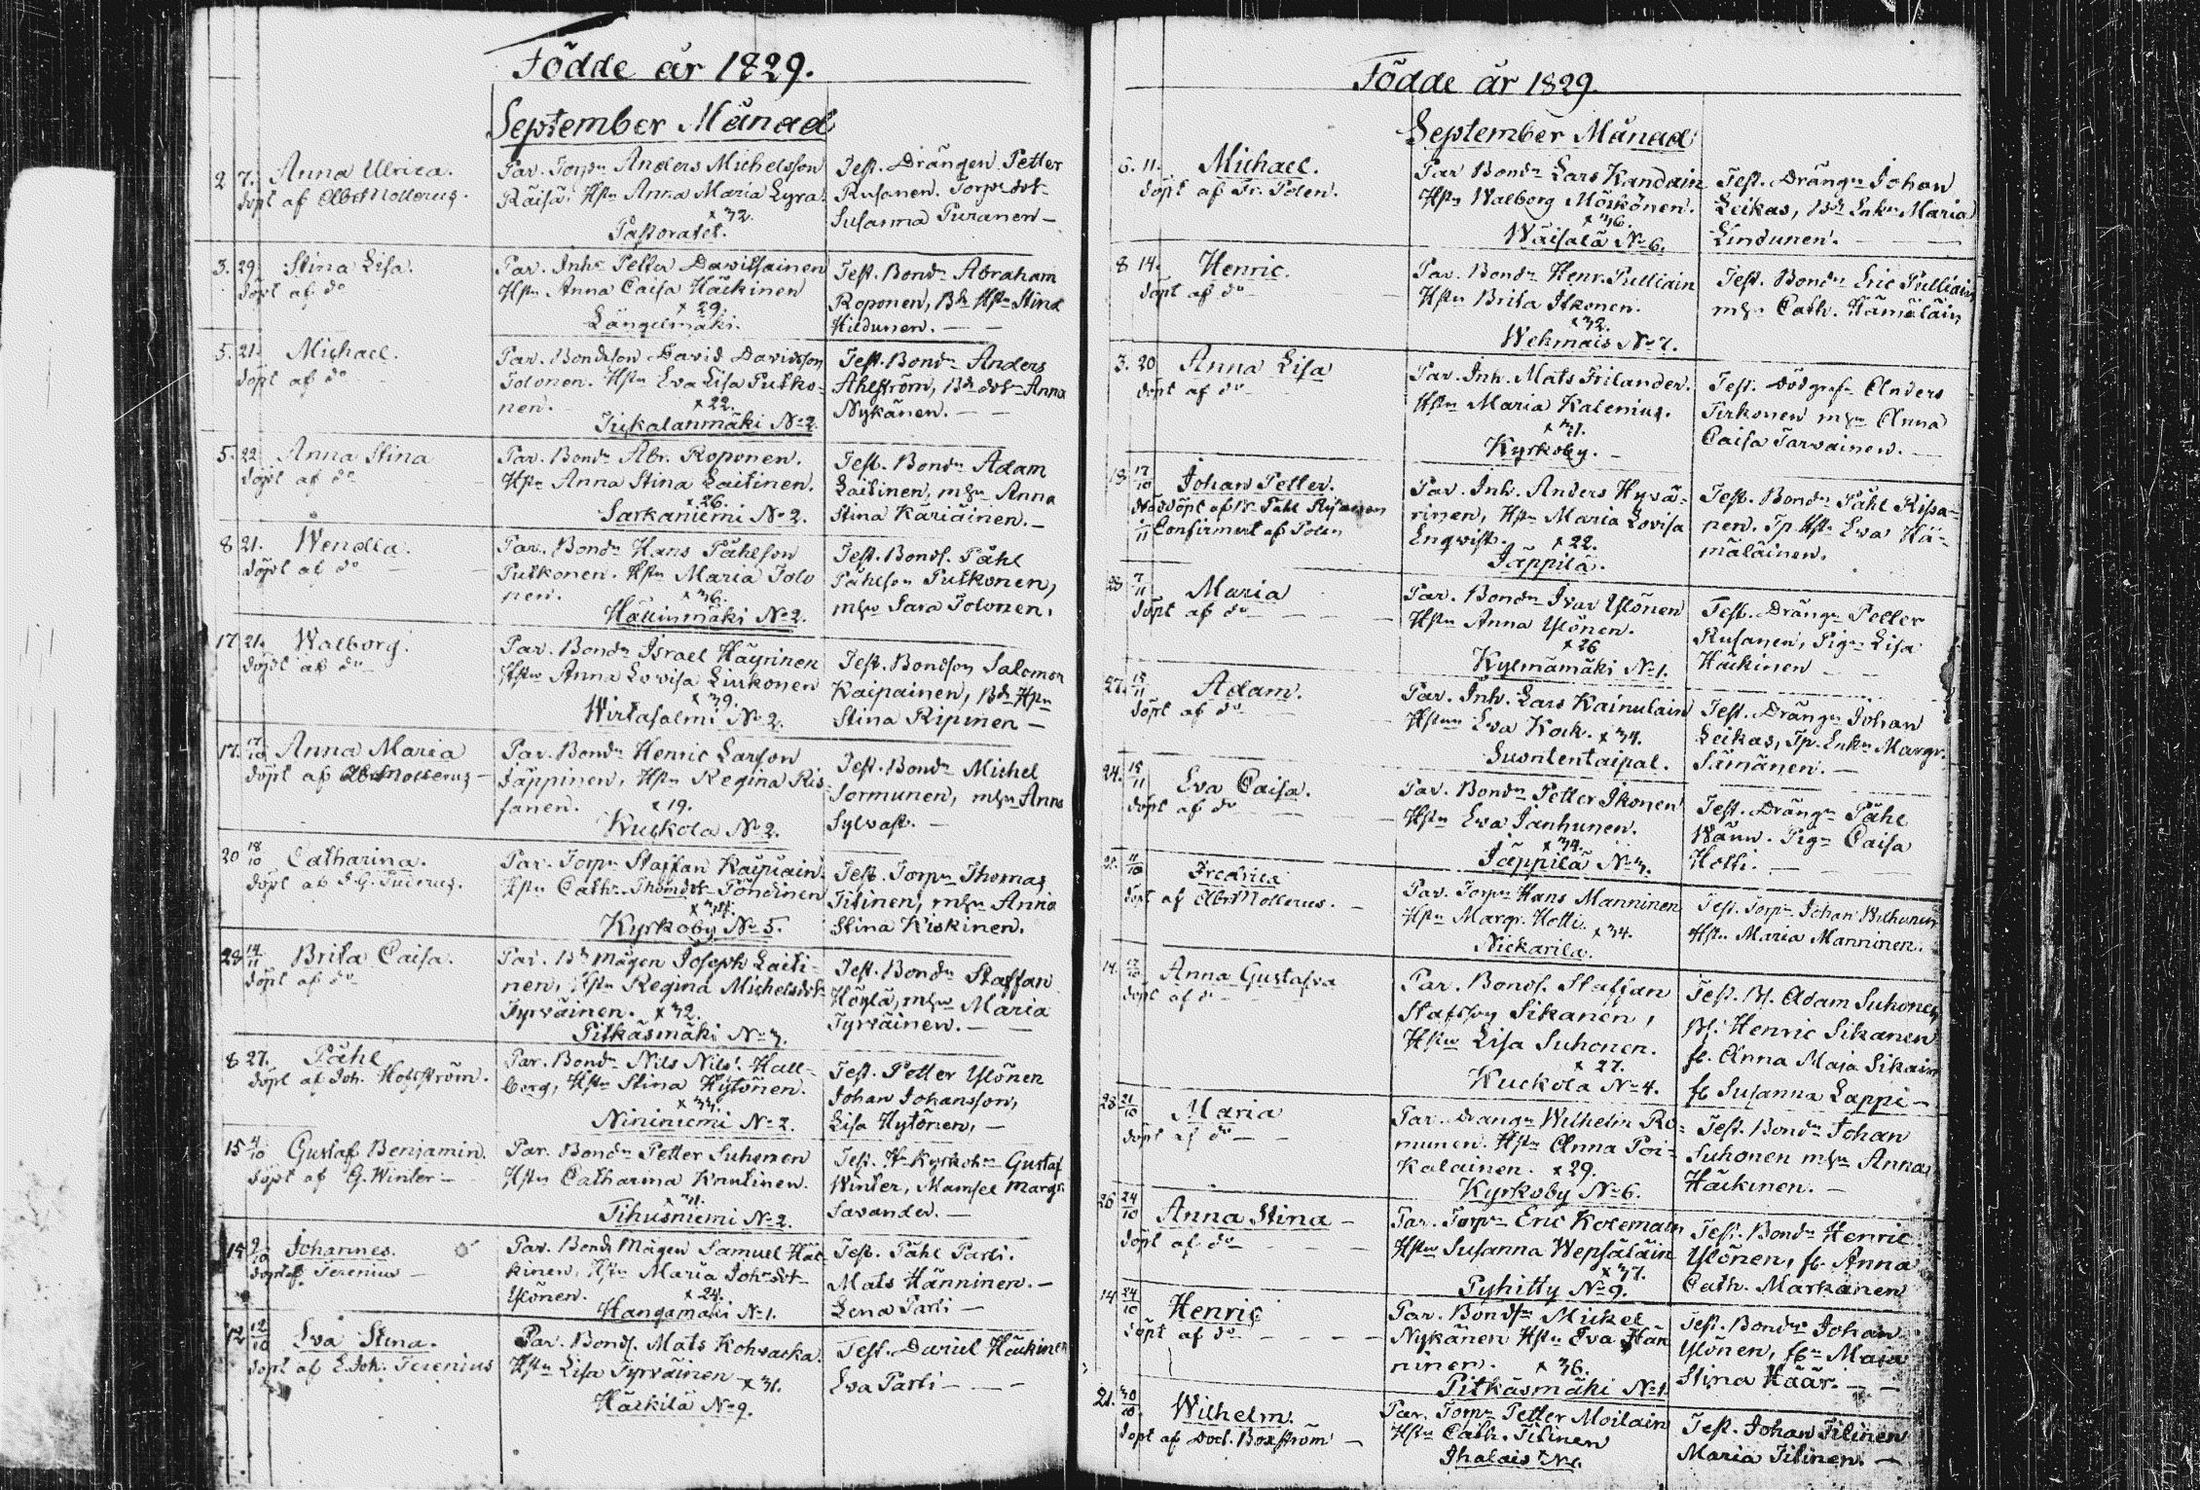 Födde år 1829.
September Månad
2 7. Anna Ulrica.
döpt af Abr Mollerus.
Par. Torpn Anders Michelsson
Räisä. Hstn Anna Maria Lyra.
x 32.
Pastoratet.
Test. Drängen Petter
Rusanen. Torpedotr
Susanna Puranen —
3. 29. Stina Lisa.
döpt af do
Par. Inhs Petter Davitsainen
Hstn Anna Caisa Häckinen
x 29.
Längelmäki.
Test. Bondn Abraham
Roponen, Bd Hstn Stina
Hiidunen. — —
5. 21. Michael.
döpt af do
Par. Bondeson David Davidsson
Tolonen. Hstn Eva Lisa Putko-
nen. x 22.
Juckalanmäki No 2.
Test. Bondn Anders
Ahlström, Bd dotr Anna
Nykänen. — —
5. 22. Anna Stina
döpt af do
Par. Bondn Abr. Roponen.
Hstn Anna Stina Laitinen.
x 26.
Sarkaniemi No 2.
Test. Bondn Adam
Laitinen, mhu Anna
Stina Käriäinen. —
8 21. Wendla.
döpt af do
Par. Bondn Hans Påhlson
Putkonen. Hstn Maria Tolo
nen. x 36.
Hällinmäki No 2.
Test. Bonds. Påhl
Påhlson Putkonen,
mhu Sara Tolonen.
17 21. Walborg.
döpt af do
Par. Bondn Israel Häyrinen
Hstn Anna Lovisa Luskonen
x 39.
Wirtasalmi No 2.
Test. Bondson Salomon
Kaipainen, Bd Hstn
Stina Ripinen —
17. 17/10 Anna Maria
döpt af Abr Mollerus —
Par. Bondn Henric Larsson
Jäppinen, Hstn Regina Ris
sanen. x 19.
Kuckola No 2.
Test. Bondn Michel
Sormunen, mhu Anna
Sylvast. —
20 18/10 Catharina.
döpt af J. G. Tuderus.
Par. Torpn Staffan Kaipiain.
Hstn Cathr. Thomdotr Pöndinen
Kyrkoby No 5.
Test. Torpn Thomas
Tilinen, mhu Anna
Stina Kiskinen.
28 14/11 Brita Caisa.
döpt af do
Par. Bd mågen Joseph Laiti-
nen, Hstn Regina Michelsdotr
Tyrväinen. x 32.
Pitkäsmäki No 3.
Test. Bondn Staffan
Höylä, mhu Maria
Tyrväinen. —
8 27. Påhl
döpt af Joh. Hoffström.
Par. Bondn Nils Nils. Hall-
berg, Hstn Stina Hytönen.
x 33.
Nininiemi No 2.
Test. Petter Ylönen
Johan Johansson,
Lisa Hytönen, —
15 4/10 Gustaf Benjamin.
döpt af G. Winter —
Par. Bondn Petter Suhonen
Hstn Catharina Knutinen.
x 31.
Tihusniemi No 2.
Test. Kyrkohn Gustaf
Winter, Mamsel Margr.
Savander. —
14 9/10 Johannes.
döpt af Terenius —
Par. Bonds Mågen Samuel Häc-
kinen, Hstn Maria Johsdotr
Ylönen. x 24.
Hangamäki No 1.
Test. Påhl Parti.
Mats Hänninen. —
Lena Parti —
12 12/10 Eva Stina.
döpt af E. Joh. Terenius
Par. Bonds. Mats Kohvacka.
Hstn Lisa Tyrväinen x 31.
Häckilä No 9.
Test. Daniel Häckinen
Eva Parti — —
Födde år 1829.
September Månad
6. 11. Michael.
döpt af Fr. Polen.
Par. Bondn Lars Kandain
Hstn Walborg Möskönen.
x 36.
Wäisälä No 6.
Test. Drängn Johan
Leikas, Bds Enkn Maria
Lindunen. —
8 14. Henric.
döpt af do
Par. Bondn Henr. Pulliain
Hstn Brita Ikonen.
x 32.
Wehmais No 7.
Test. Bondn Eric Pulliain
mhu Cath. Hämäläin
3. 20 Anna Lisa
döpt af do
Par. Inh. Mats Frilander.
Hstn Maria Kalenius.
x 31.
Kyrkoby. —
Test. Dödgrfn Anders
Pirkonen mhu Anna
Caisa Tarvainen. —
18 17/10 Johan Petter.
Nöddöpt af Påhl Rissanen
/11 Confirmert af Polen
Par. Inh. Anders Hyvä-
rinen, Hstn Maria Lovisa
Enqvist. x 22.
Jäppilä.
Test. Bondn Påhl Rissa-
nen. Tp. Hstn Eva Hä-
mäläinen.
23 7/11 Maria
döpt af do
Par. Bondn Ivar Ylönen
Hstn Anna Ylönen.
x 26
Kylmämäki No 1.
Test. Drängn Petter
Rusanen, Pign Lisa
Häckinen —
27. 15/11 Adam.
döpt af do
Par. Inh. Lars Kainulain
Hstnn Eva Kock. x 34.
Suontentaipal.
Test. Drängn Johan
Leikas, Tp. Enkn Margr.
Sämänen. —
24. 15/11 Eva Caisa.
döpt af do
Par. Bondn Petter Ikonen
Hstn Eva Janhunen.
x 34.
Jäppilä No 3.
Test. Drängn Påhl
Wänn. Pign Caisa
Hotti. —
21. 11/10 Fredrica
döpt af Abr Mollerus. —
Par. Torpn Hans Manninen
Hstn Margr. Hotti. x 34.
Nickarila.
Test. Torpn Johan Wilhunen
Hstn Maria Manninen.
14. 17/10 Anna Gustafva
döpt af do
Par. Bonds. Staffan
Stafson Sikanen,
Hstn Lisa Suhonen.
x 27.
Kuckola No 4.
Test. Bs. Adam Suhonen,
Bs. Henric Sikanen
fl. Anna Maja Sikain
fl. Susanna Lappi —
23 21/10 Maria
döpt af do —
Par. Drängn Wilhelm Ro-
munen. Hstn Anna Poi-
kalainen. x 29.
Kyrkoby No 6.
Test. Bondn Johan
Suhonen mhu Anna
Häckinen. —
26 24/10 Anna Stina —
döpt af do
Par. Torpn Eric Kolemain
Hstn Susanna Wepsäläin
x 37.
Pyhitty No 9.
Test. Bondn Henric
Ylönen, fl. Anna
Cath. Markanen
14 24/10 Henric
döpt af do
Par. Bondsn Mickel
Nykänen Hstn Eva Hän
ninen. x 36.
Pitkäsmäki No 1
Test. Bondn Johan
Ylönen, fln Maja
Stina Häär. —
21. 30/10. Wilhelm.
döpt af Doct. Boxström —
Par. Torpn Petter Moilain
Hstn Cath. Tilinen
Ihalais No 1.
Test. Johan Tilinen
Maria Tilinen. —